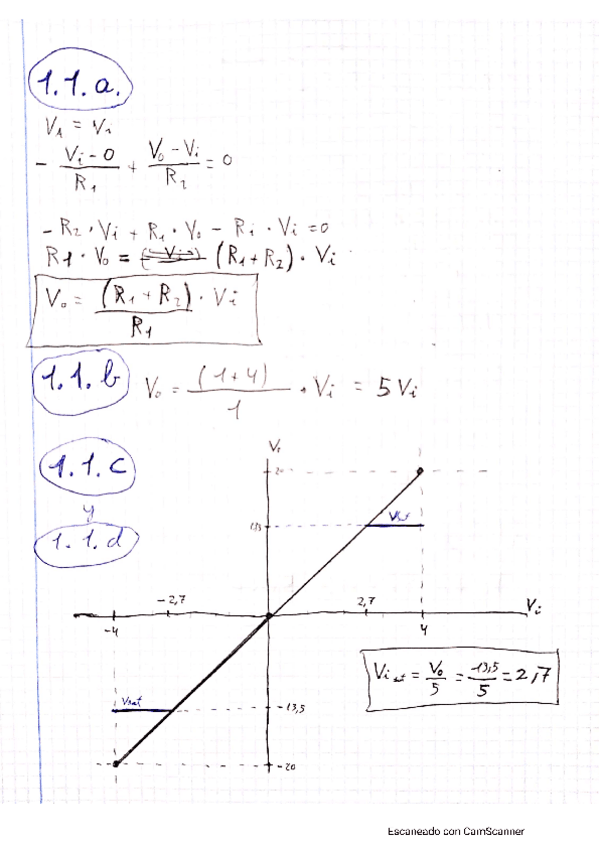 1.1.a.
V₁ = Vi
- (Vi - 0)/R₁ + (V₀ - Vi)/R₂ = 0
- R₂ · Vi + R₁ · V₀ - R₁ · Vi = 0
R1 · V₀ = (R₁ + R₂) · Vi
V₀ = (R₁ + R₂)/R₁ · Vi
1.1.b V₀ = (1+4)/1 · Vi = 5 Vi
1.1.c
y
1.1.d
20
13,5
Vsat
-2,7
2,7
Vi
-4
4
Vi sat = V₀/5 = 13,5/5 = 2,7
Vsat
-13,5
-20
Escaneado con CamScanner